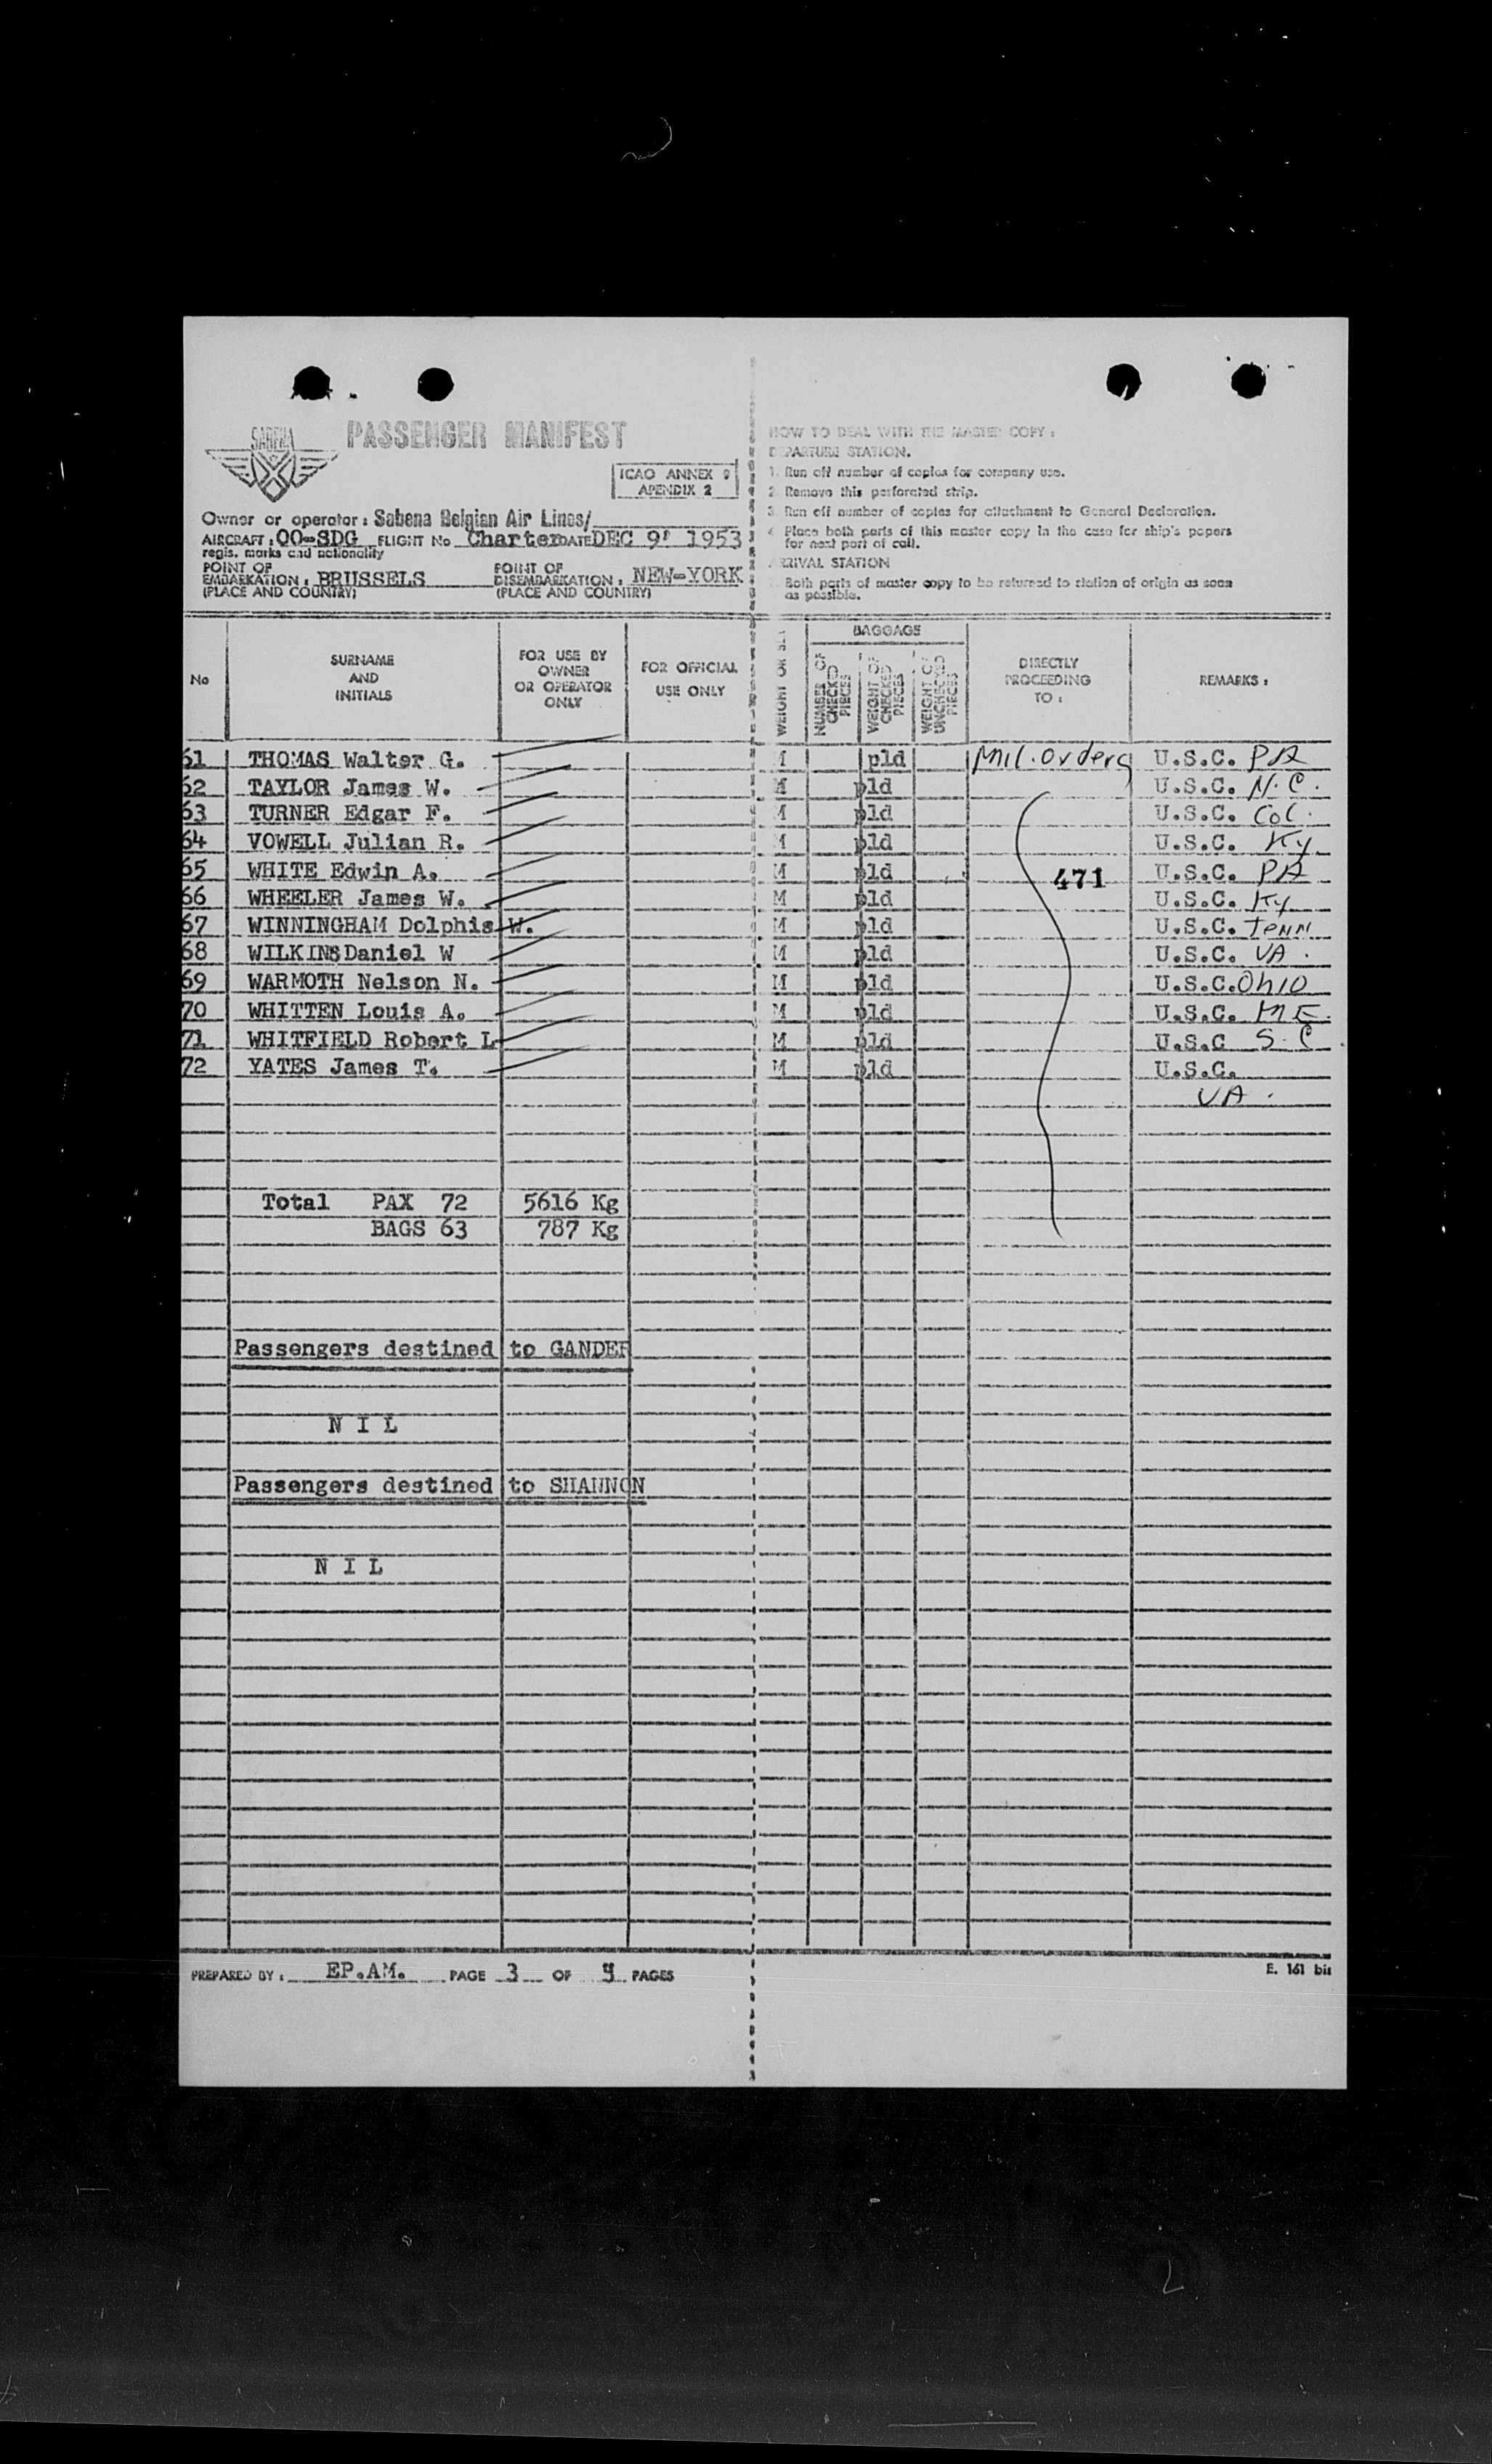 SABENA
PASSENGER MANIFEST
ICAO ANNEX 9
APENDIX 2
Owner or operator : Sabena Belgian Air Lines/
AIRCRAFT : OO-SDG FLIGHT No Charter DATE DEC 9' 1953
regis. marks and nationality
POINT OF EMBARKATION : BRUSSELS POINT OF DISEMBARKATION : NEW-YORK
(PLACE AND COUNTRY) (PLACE AND COUNTRY)
HOW TO DEAL WITH THE MASTER COPY :
DEPARTURE STATION.
1. Run off number of copies for company use.
2. Remove this perforated strip.
3. Run off number of copies for attachment to General Declaration.
4. Place both parts of this master copy in the case for ship's papers
for next port of call.
ARRIVAL STATION
Both parts of master copy to be returned to station of origin as soon
as possible.
No SURNAME AND INITIALS FOR USE BY OWNER OR OPERATOR ONLY FOR OFFICIAL USE ONLY WEIGHT OR BAGGAGE NUMBER OF CHECKED PIECES WEIGHT OF CHECKED PIECES WEIGHT OF UNCHECKED PIECES DIRECTLY PROCEEDING TO : REMARKS :
61 THOMAS Walter G. M pld Mil. Orders U.S.C. PA
62 TAYLOR James W. M pld U.S.C. N.C.
63 TURNER Edgar F. M pld U.S.C. Col.
64 VOWELL Julian R. M pld U.S.C. Ky.
65 WHITE Edwin A. M pld 471 U.S.C. PA
66 WHEELER James W. M pld U.S.C. Ky
67 WINNINGHAM Dolphis W. M pld U.S.C. Tenn
68 WILKINS Daniel W M pld U.S.C. VA.
69 WARMOTH Nelson N. M pld U.S.C. Ohio
70 WHITTEN Louis A. M pld U.S.C. ME.
71 WHITFIELD Robert L M pld U.S.C S.C
72 YATES James T. M pld U.S.C.
VA.
Total PAX 72 5616 Kg
BAGS 63 787 Kg
Passengers destined to GANDER
N I L
Passengers destined to SHANNON
N I L
PREPARED BY : EP.AM. PAGE 3 OF PAGES
E. 161 bis